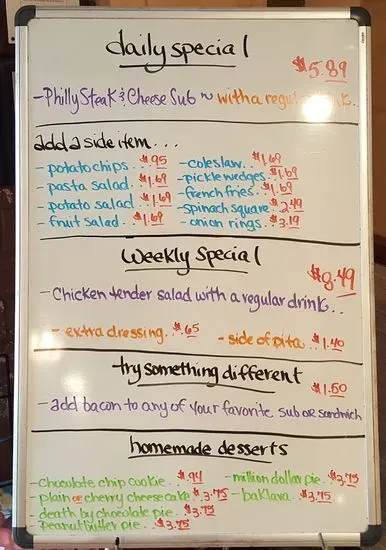 daily special
$5.89
-Philly Steak & Cheese Sub ~ with a regular drink.
add a side item...
-potato chips . $.95 -coleslaw . $1.69
-pasta salad . $1.69 -pickle wedges . $1.69
-potato salad . $1.69 -french fries . $1.69
-fruit salad . $1.69 -spinach square . $2.49
-onion rings . $3.19
Weekly Special
$8.49
-Chicken tender salad with a regular drink..
-extra dressing... $.65 -side of pita . $1.40
try something different
$1.50
-add bacon to any of your favorite sub or sandwich
homemade desserts
-chocolate chip cookie . $.94 -million dollar pie . $3.75
-plain or cherry cheesecake . $3.75 -baklava . $3.75
-death by chocolate pie . $3.75
-peanutbutter pie . $3.75